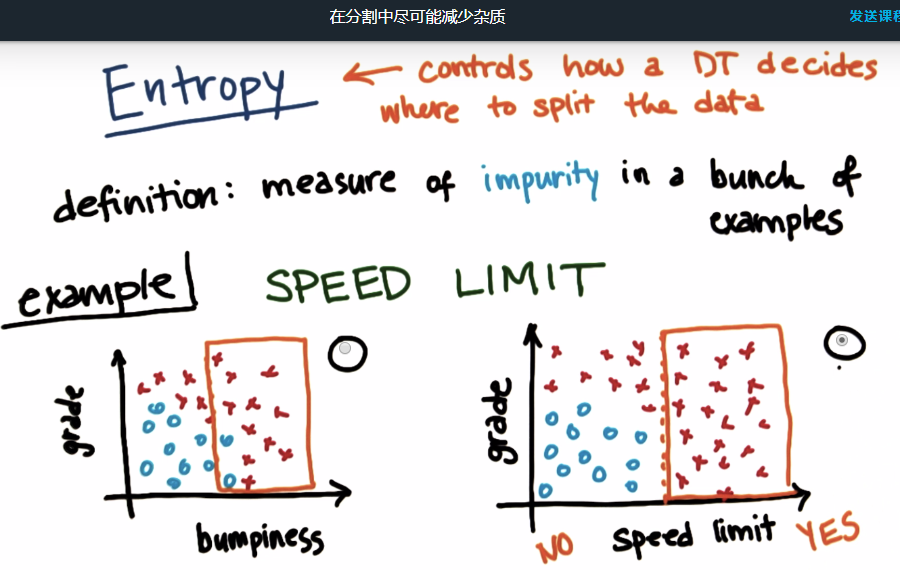 在分割中尽可能减少杂质
发送课程
Entropy ← controls how a DT decides
where to split the data
definition: measure of impurity in a bunch of
examples
example
SPEED LIMIT
grade
bumpiness
grade
NO speed limit YES